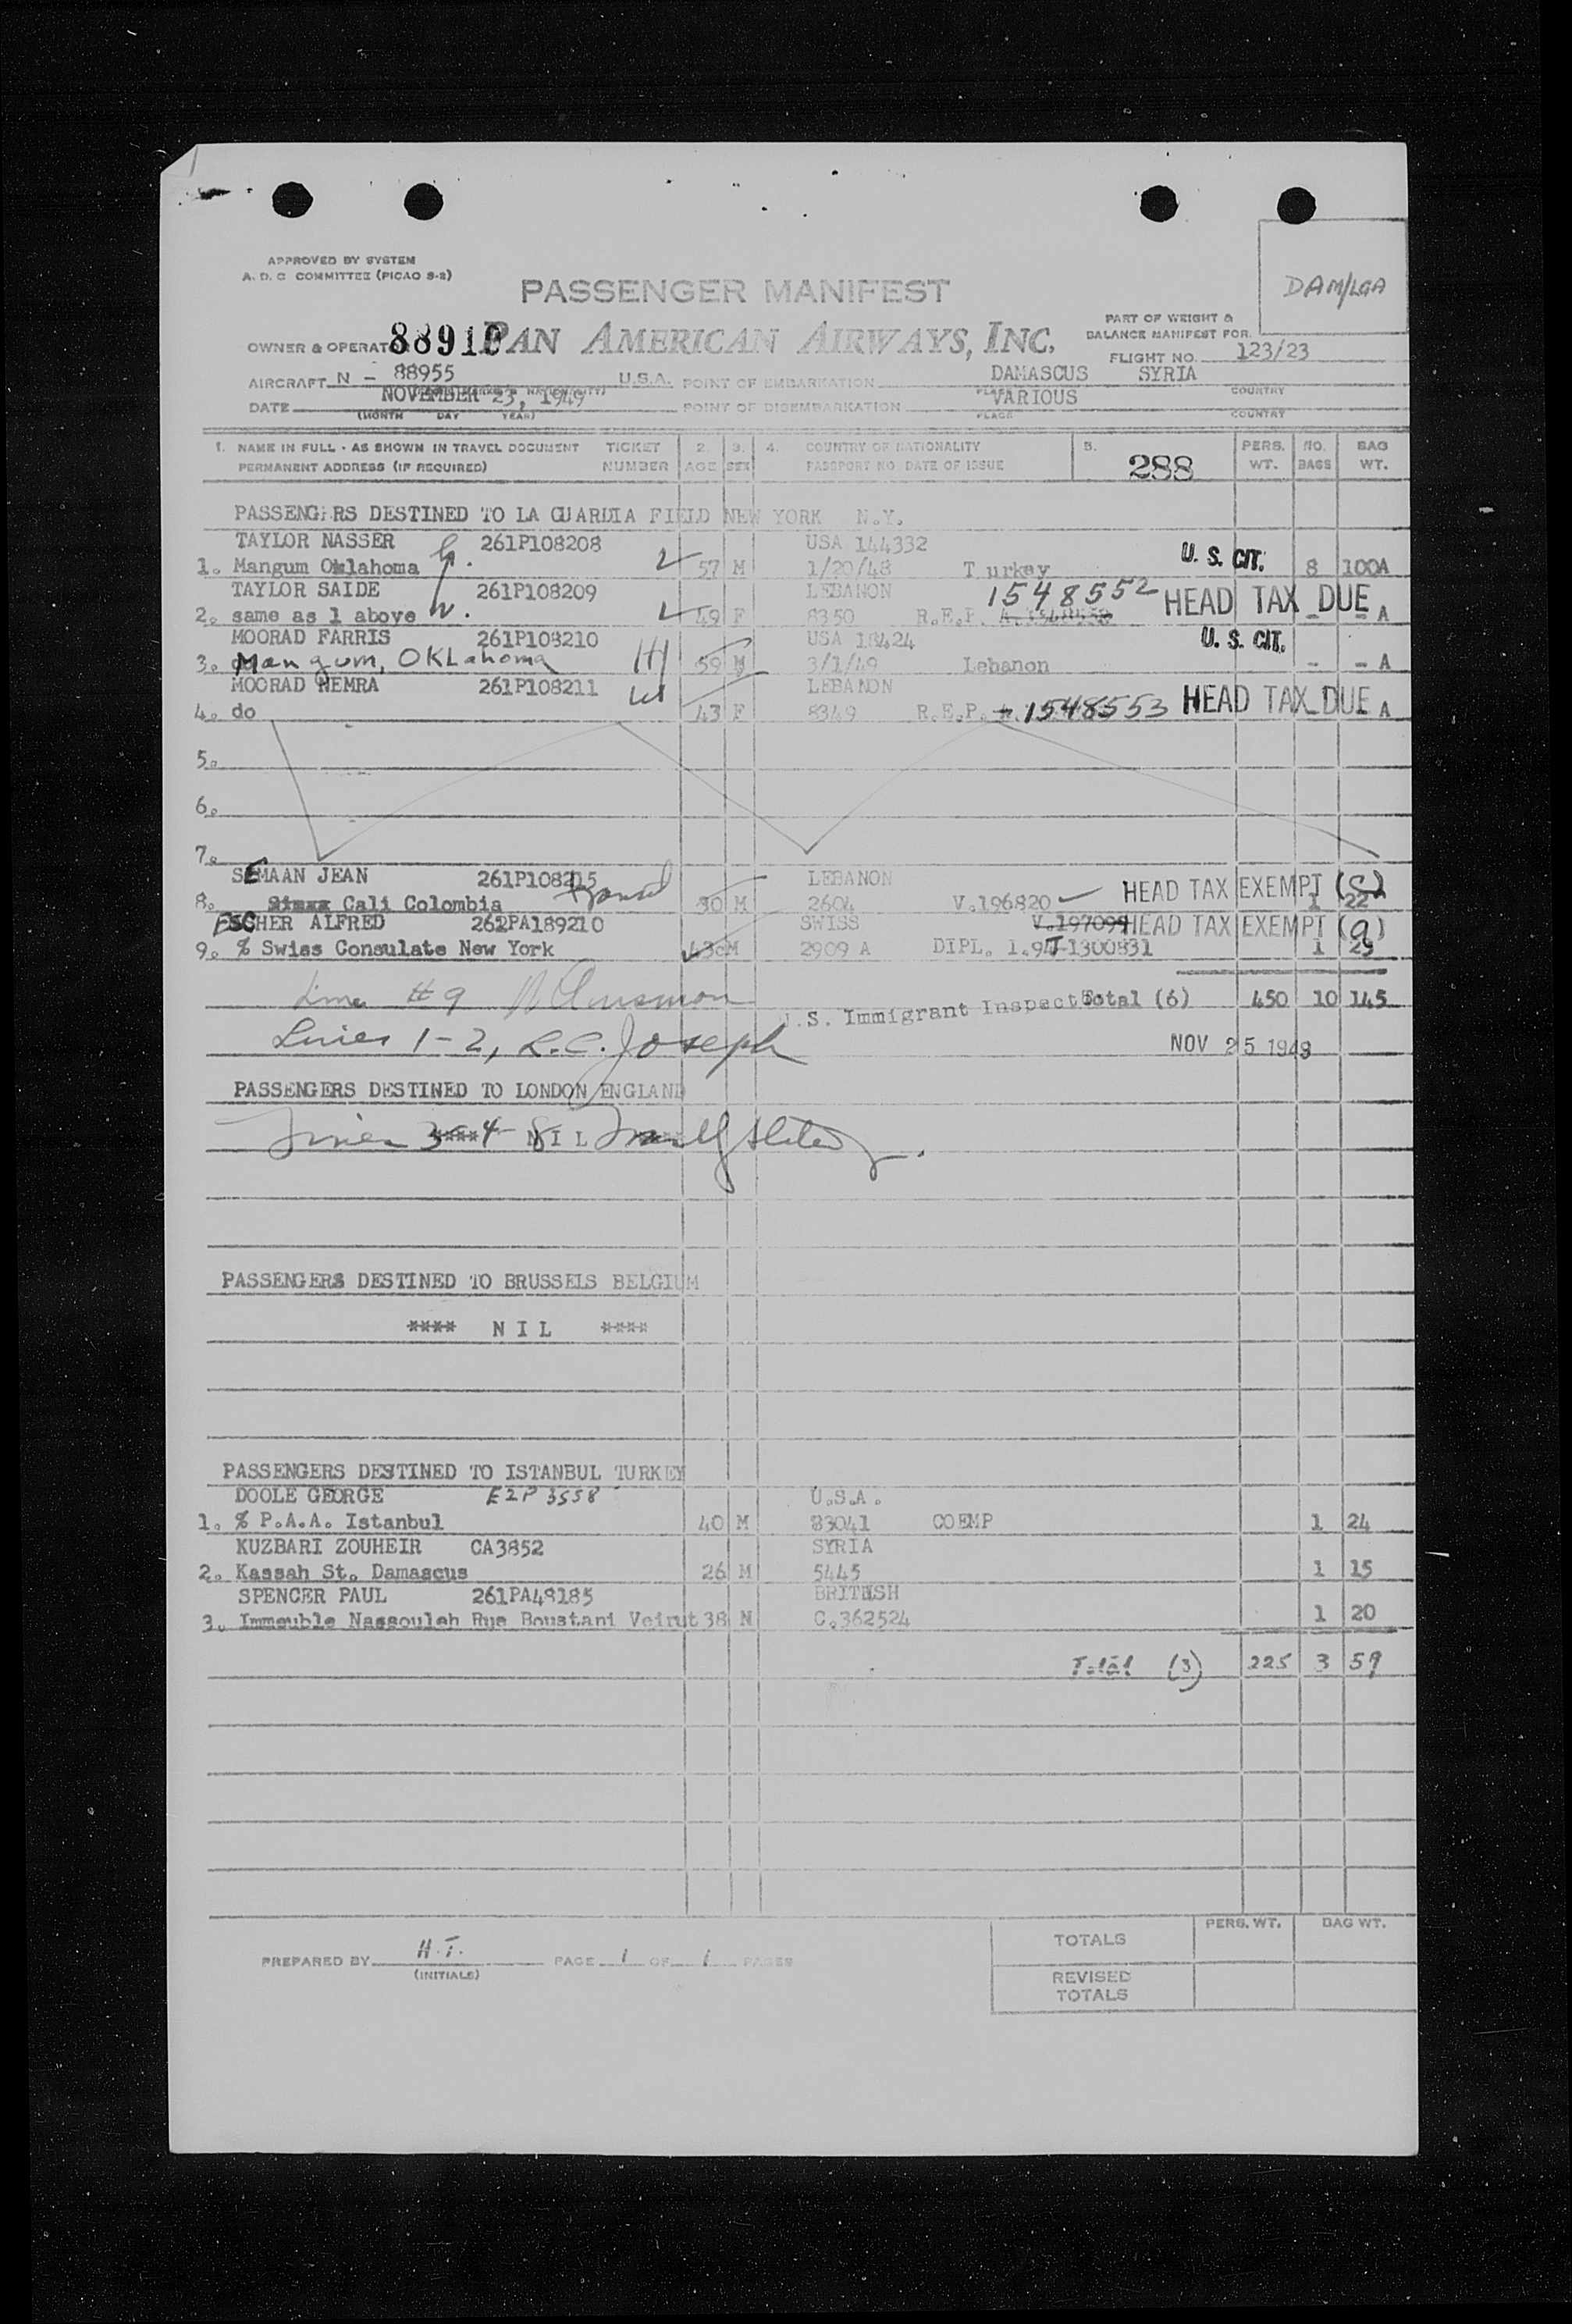 APPROVED BY SYSTEM
A. D. C COMMITTEE (PICAO S-2)
PASSENGER MANIFEST
DAM/LGA
PART OF WEIGHT &
BALANCE MANIFEST FOR
OWNER & OPERATOR 88910 PAN AMERICAN AIRWAYS, INC.
FLIGHT NO. 123/23
AIRCRAFT N - 88955 U.S.A. POINT OF EMBARKATION DAMASCUS SYRIA
PLACE COUNTRY
DATE NOVEMBER 23, 1949 POINT OF DISEMBARKATION VARIOUS
(MONTH DAY YEAR) PLACE COUNTRY
1. NAME IN FULL - AS SHOWN IN TRAVEL DOCUMENT TICKET 2. 3. 4. COUNTRY OF NATIONALITY 5. PERS. NO. BAG
PERMANENT ADDRESS (IF REQUIRED) NUMBER AGE SEX PASSPORT NO. DATE OF ISSUE 288 WT. BAGS WT.
PASSENGERS DESTINED TO LA GUARDIA FIELD NEW YORK N.Y.
TAYLOR NASSER 261P108208 USA 144332
1. Mangum Oklahoma 57 M 1/20/48 Turkey U. S. CIT. 8 100A
TAYLOR SAIDE 261P108209 LEBANON 1548552 HEAD TAX DUE
2. same as 1 above 49 F 8350 R.E.P. - - A
MOORAD FARRIS 261P108210 USA 18424 U. S. CIT.
3. Mangum, OKLahoma 59 M 3/1/49 Lebanon - - A
MOORAD NEMRA 261P108211 LEBANON
4. do 43 F 8349 R.E.P. 1548553 HEAD TAX DUE A
5.
6.
7.
SEMAAN JEAN 261P108215 LEBANON HEAD TAX EXEMPT (C)
8. Cali Colombia 30 M 2604 V.196820 1 22
ESCHER ALFRED 262PA189210 SWISS V.197099 HEAD TAX EXEMPT (a)
9. % Swiss Consulate New York 43 M 2909 A DIPL. 1300831 1 23
Line #9
U.S. Immigrant Inspector Total (6) 450 10 145
Lines 1-2, R.C. Joseph NOV 25 1949
PASSENGERS DESTINED TO LONDON ENGLAND
**** N I L
Lines 3-4-8
PASSENGERS DESTINED TO BRUSSELS BELGIUM
**** N I L ****
PASSENGERS DESTINED TO ISTANBUL TURKEY
DOOLE GEORGE E2P 3558 U.S.A.
1. % P.A.A. Istanbul 40 M 83041 COEMP 1 24
KUZBARI ZOUHEIR CA3852 SYRIA
2. Kassah St. Damascus 26 M 5445 1 15
SPENCER PAUL 261PA48185 BRITISH
3. Immeuble Nassouleh Rue Boustani Veirut 38 M C.362524 1 20
Total (3) 225 3 59
PERS. WT. BAG WT.
TOTALS
PREPARED BY H.T. PAGE 1 OF 1 PAGES
(INITIALS)
REVISED
TOTALS